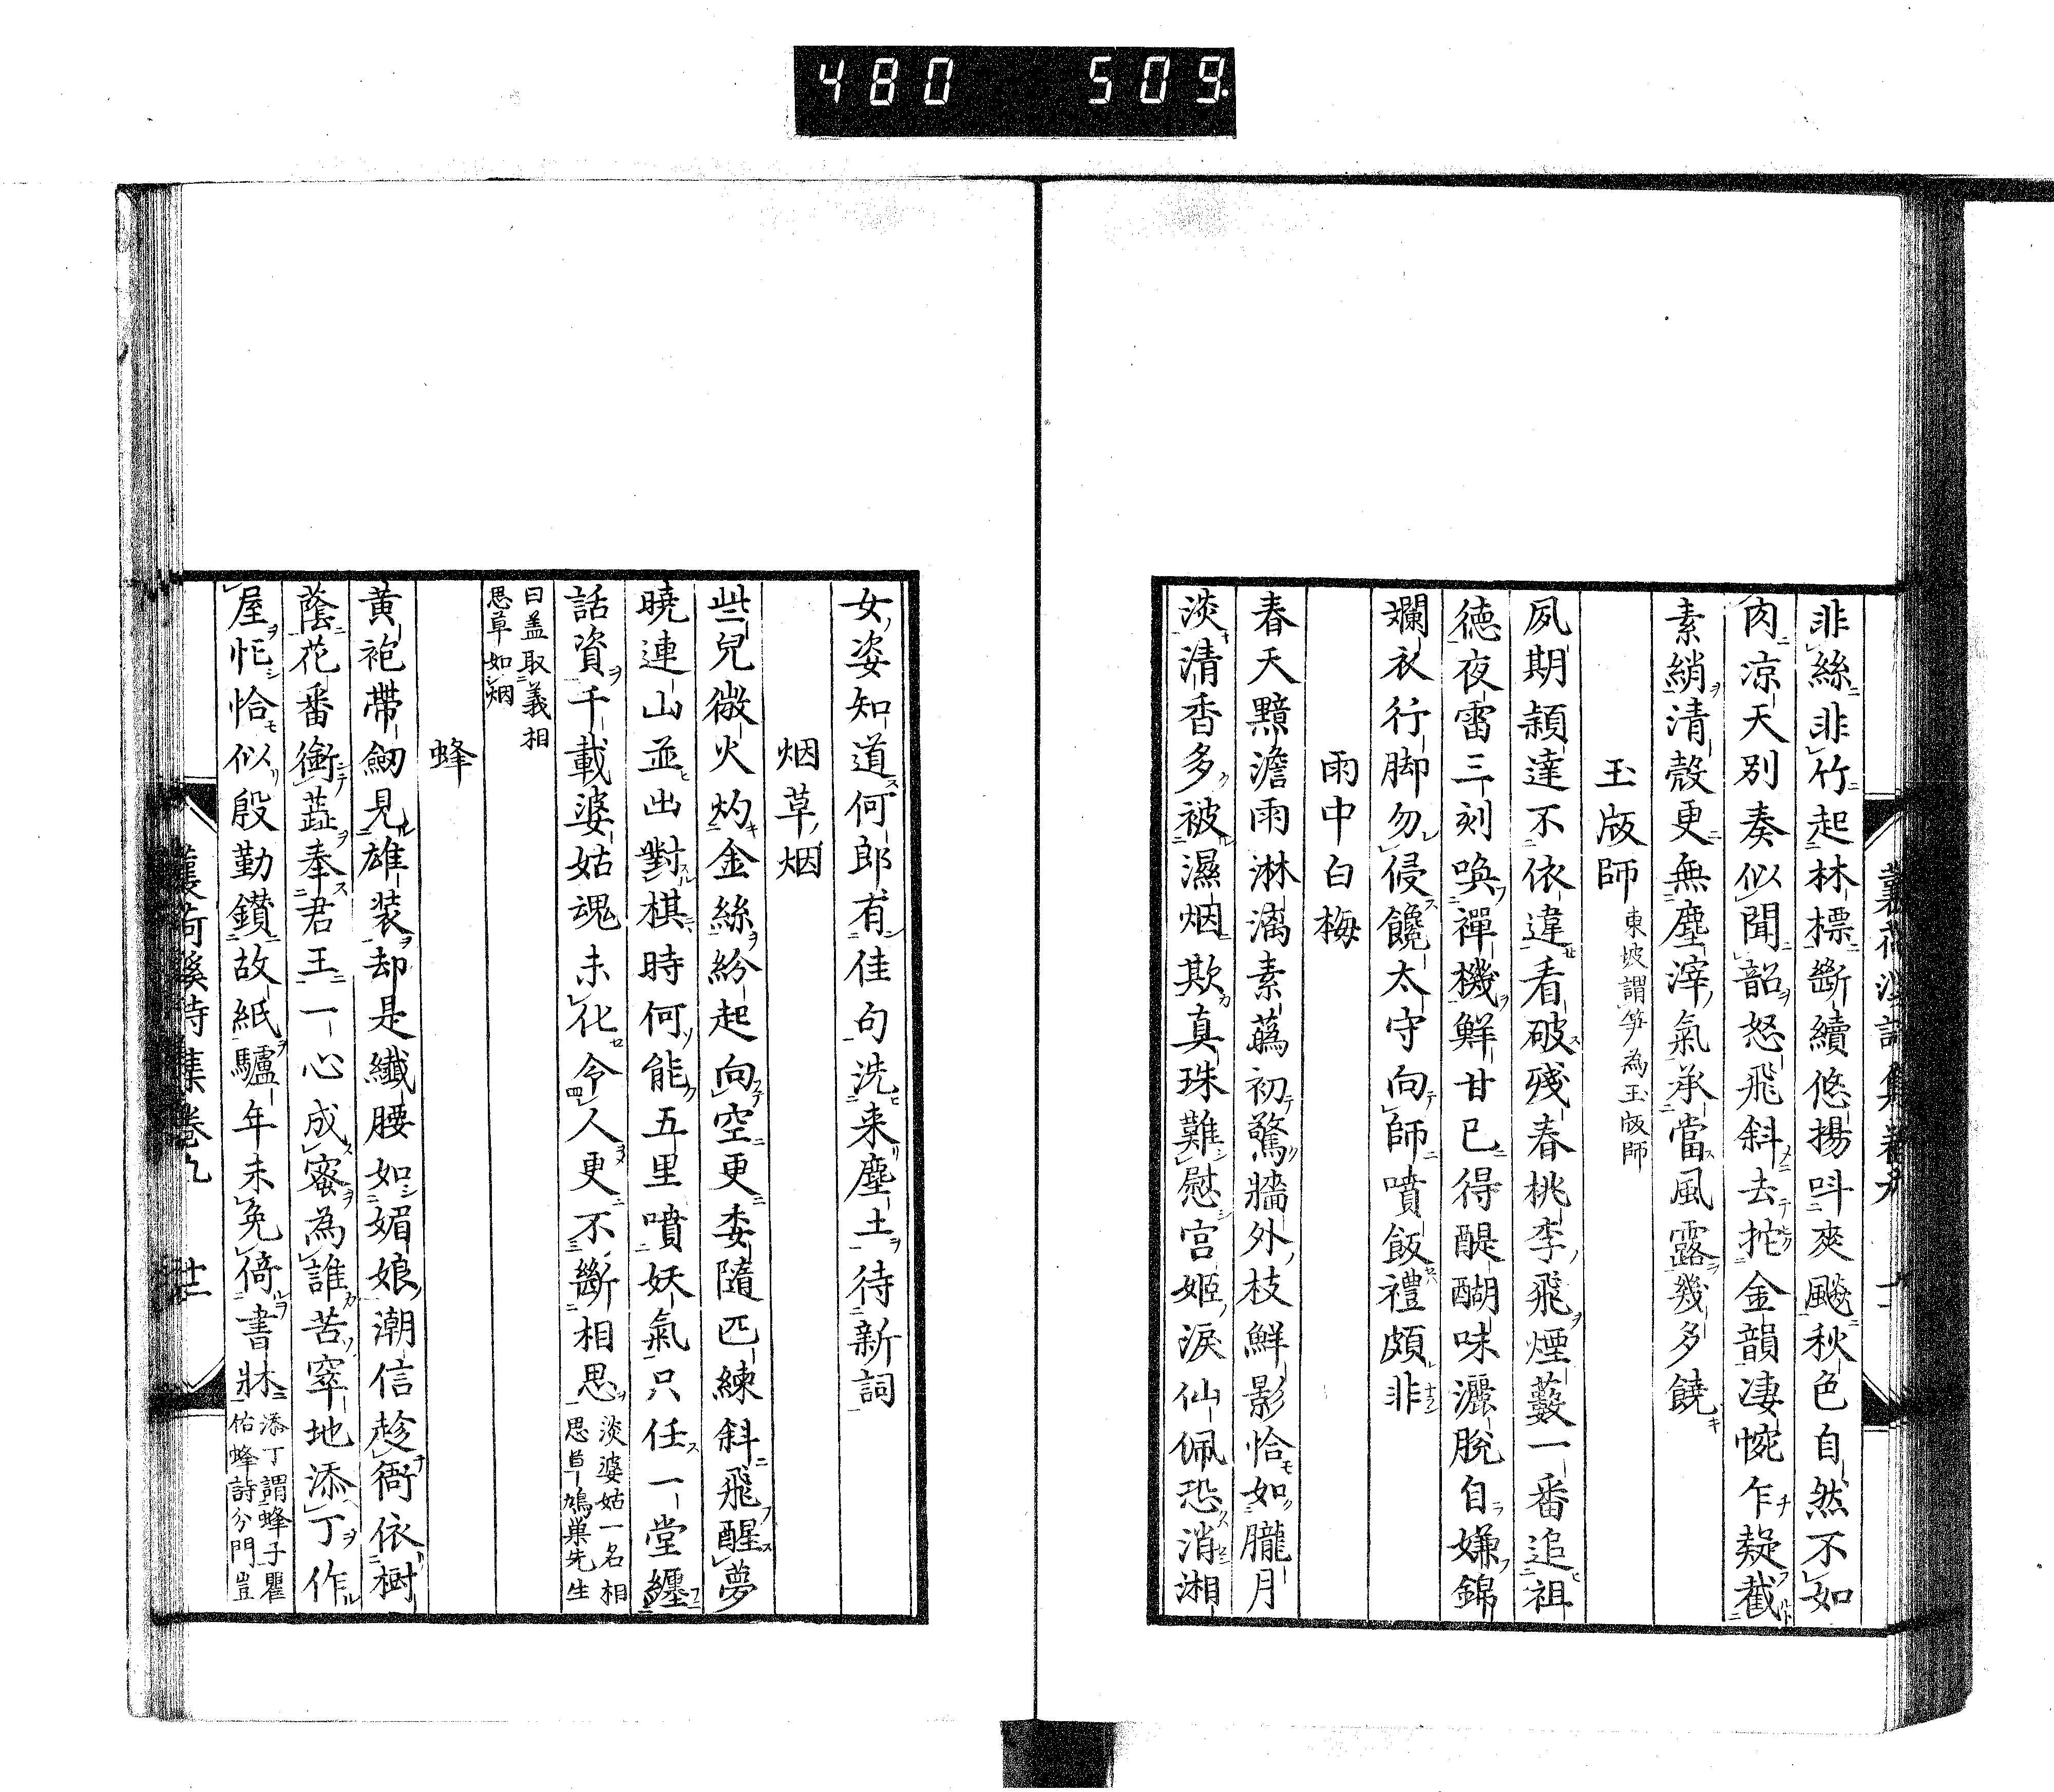 480 509
非絲非竹起林標斷續悠揚叫爽颸秋色自然不如
肉涼天別奏似聞韶怒飛斜去拕金韻凄惋乍疑戴
素綃清殼更無塵滓氣承當風露幾多饒
玉版師 東坡謂笋為玉版師
夙期穎達不依違看破殘春桃李飛煙蔌一番追祖
徳夜雷三刻喚禪機鮮甘已得醍醐味灑脫自嫌錦
斕衣行脚勿侵饞太守向師噴飯禮頗非
雨中白梅
春天黯澹雨淋漓素蕊初驚牆外枝鮮影恰如朧月
淡清香多被濕烟欺真珠難慰宮姬淚仙佩恐消湘
女姿知道何郎有佳句洗来塵土待新詞
烟草烟
些兒微火灼金絲紛起向空更委隨匹練斜飛醒夢
曉連山並出對棋時何能五里噴妖氣只任一堂纏
話資千載婆姑魂未化令人更不斷相思 淡婆姑一名相
思草鳩巢先生
曰盖取義相
思草如烟
蜂
黄袍帶劒見雄装却是纖腰如媚娘潮信趁衙依樹
蔭花番衝蕋奉君王一心成蜜為誰苦窣地添丁作
屋忙恰似殷勤鑚故紙驢年未免倚書牀 添丁謂蜂子瞿
佑蜂詩分門豈
詩集卷九